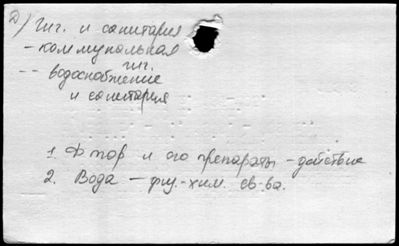 2) Гиг. и санитария
- коммунальная гиг.
-- водоснабжение
и санитария
1. Фтор и его препараты - действие
2. Вода - физ.-хим. св-ва.